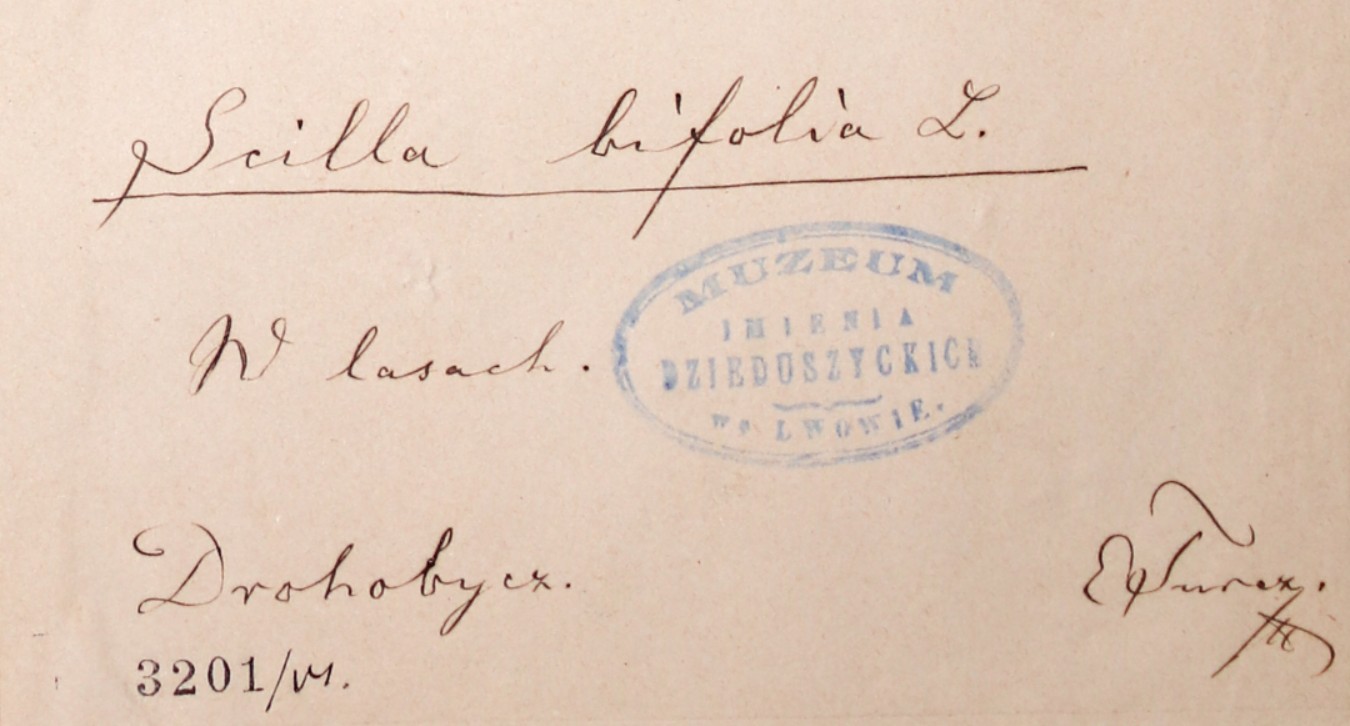 Scilla bifolia L.
W lasach.
MUZEUM
IMIENIA
DZIEDUSZYCKICH
we LWOWIE.
Drohobycz.
ETurcz.
3201/VI.